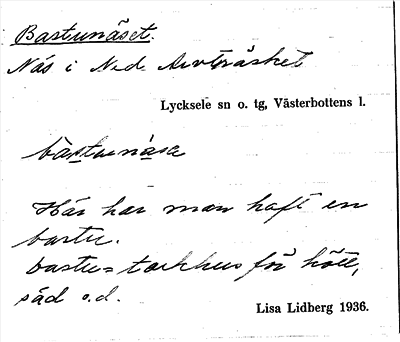 Bastunäset.
Näs i Ned. Arvträsket
Lycksele sn o. tg, Västerbottens l.
bastunäse
Här har man haft en
bastu.
bastu = torkhus för hö,
säd o.d.
Lisa Lidberg 1936.